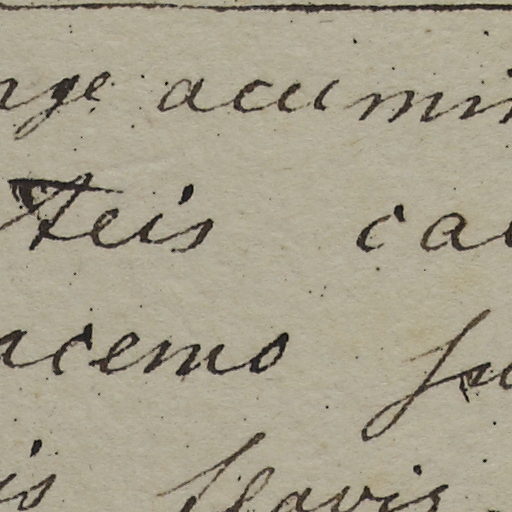 nge acumin
teis ca
acemo su
is flavis